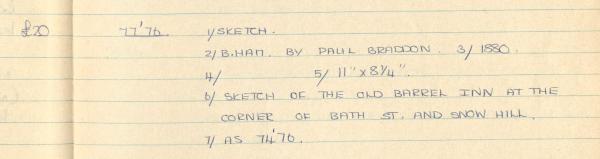 £20 77'76. 1/ SKETCH.
2/ B.HAM. BY PAUL BRADDON. 3/ 1880.
4/ 5/ 11" x 8¼".
6/ SKETCH OF THE OLD BARREL INN AT THE
CORNER OF BATH ST. AND SNOW HILL.
7/ AS 74'76.